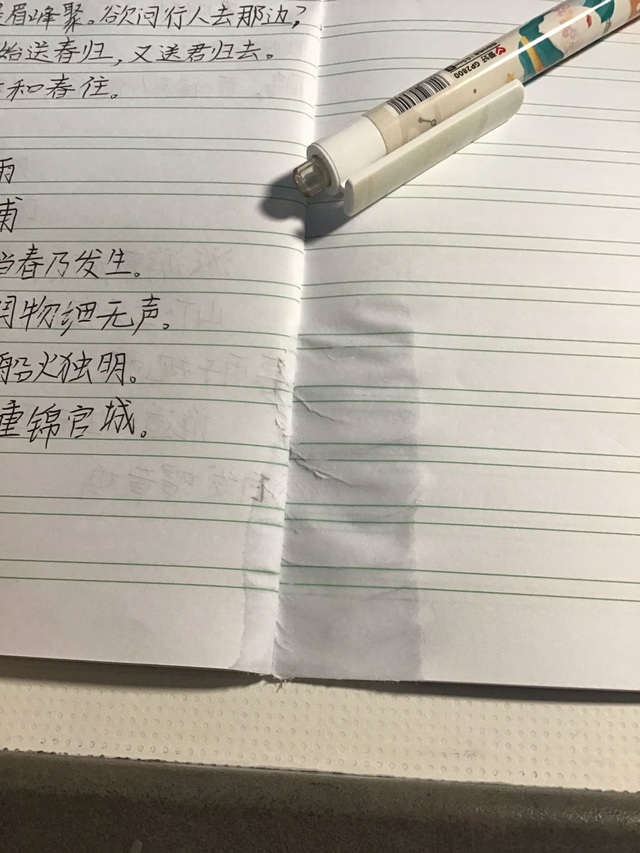 眉峰聚。欲问行人去那边？
始送春归，又送君归去。
和春住。
雨
甫
当春乃发生。
润物细无声。
船火独明。
重锦官城。
GP2800